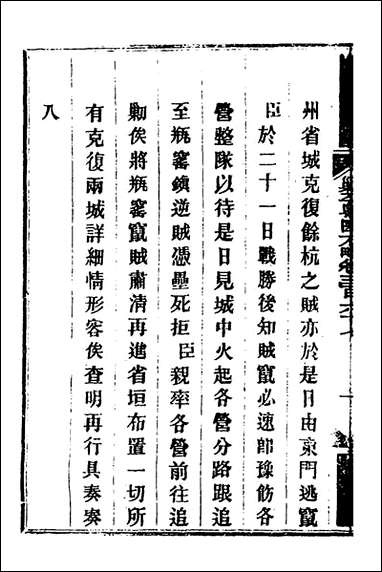 州省城克復餘杭之賊亦於是日由東門逃竄
臣於二十一日戰勝後知賊竄必速卽豫飭各
營整隊以待是日見城中火起各營分路跟追
至瓶窰鎭逆賊憑壘死拒臣親率各營前往追
勦俟將瓶窰竄賊肅清再進省垣布置一切所
有克復兩城詳細情形容俟查明再行具奏奏
八